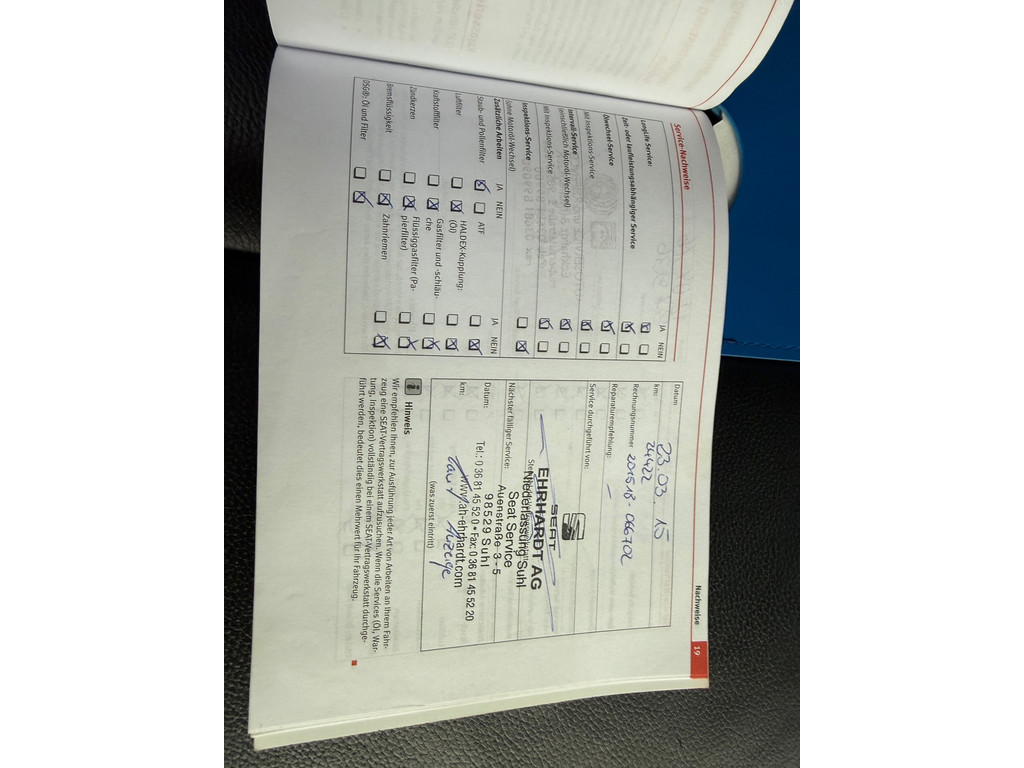 Nachweise 19
Service-Nachweise
JA NEIN
LongLife Service: ☒ ☐
Zeit- oder laufleistungsabhängiger Service ☒ ☐
Ölwechsel-Service ☒ ☐
Mit Inspektions-Service ☒ ☐
Intervall-Service
(einschließlich Motoröl-Wechsel) ☒ ☐
Mit Inspektions-Service ☒ ☐
Inspektions-Service
(ohne Motoröl-Wechsel) ☐ ☒
Zusätzliche Arbeiten JA NEIN JA NEIN
Staub- und Pollenfilter ☒ ☐ ATF ☐ ☒
Luftfilter ☐ ☒ HALDEX-Kupplung:
(Öl) ☐ ☒
Kraftstofffilter ☐ ☒ Gasfilter und -schläu-
che ☐ ☒
Zündkerzen ☐ ☒ Flüssiggasfilter (Pa-
pierfilter) ☐ ☒
Bremsflüssigkeit ☐ ☒ Zahnriemen ☐ ☒
DSG®: Öl und Filter ☐ ☒
Datum 23.03.15
km: 24422
Rechnungsnummer 201518-066702
Reparaturempfehlung: –
Service durchgeführt von:
SEAT
EHRHARDT AG
Niederlassung Suhl
Seat Service
Auenstraße 3-5
98529 Suhl
Tel.: 0 36 81 45 52 0 • Fax: 0 36 81 45 52 20
www.ah-ehrhardt.com
Nächster fälliger Service:
Datum:
km: laut Anzeige
(was zuerst eintritt)
i Hinweis
Wir empfehlen Ihnen, zur Ausführung jeder Art von Arbeiten an Ihrem Fahr-
zeug eine SEAT-Vertragswerkstatt aufzusuchen. Wenn die Services (Öl, War-
tung, Inspektion) vollständig bei einem SEAT-Vertragswerkstatt durchge-
führt werden, bedeutet dies einen Mehrwert für Ihr Fahrzeug.